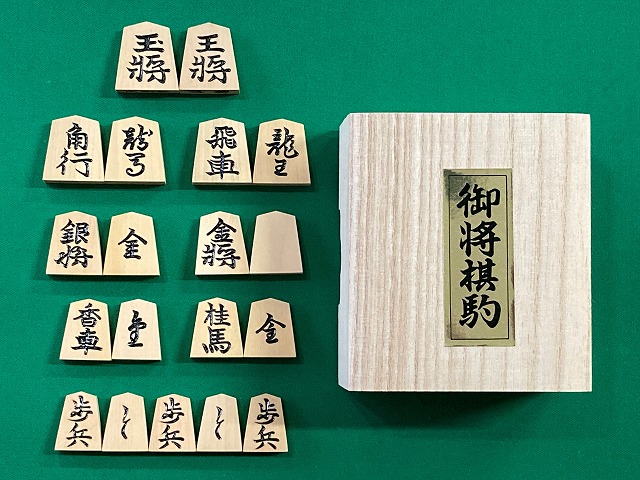 玉將
王將
角行
龍馬
飛車
龍王
銀将
全
金將
香車
桂馬
金
歩兵
と
歩兵
と
歩兵
御将棋駒